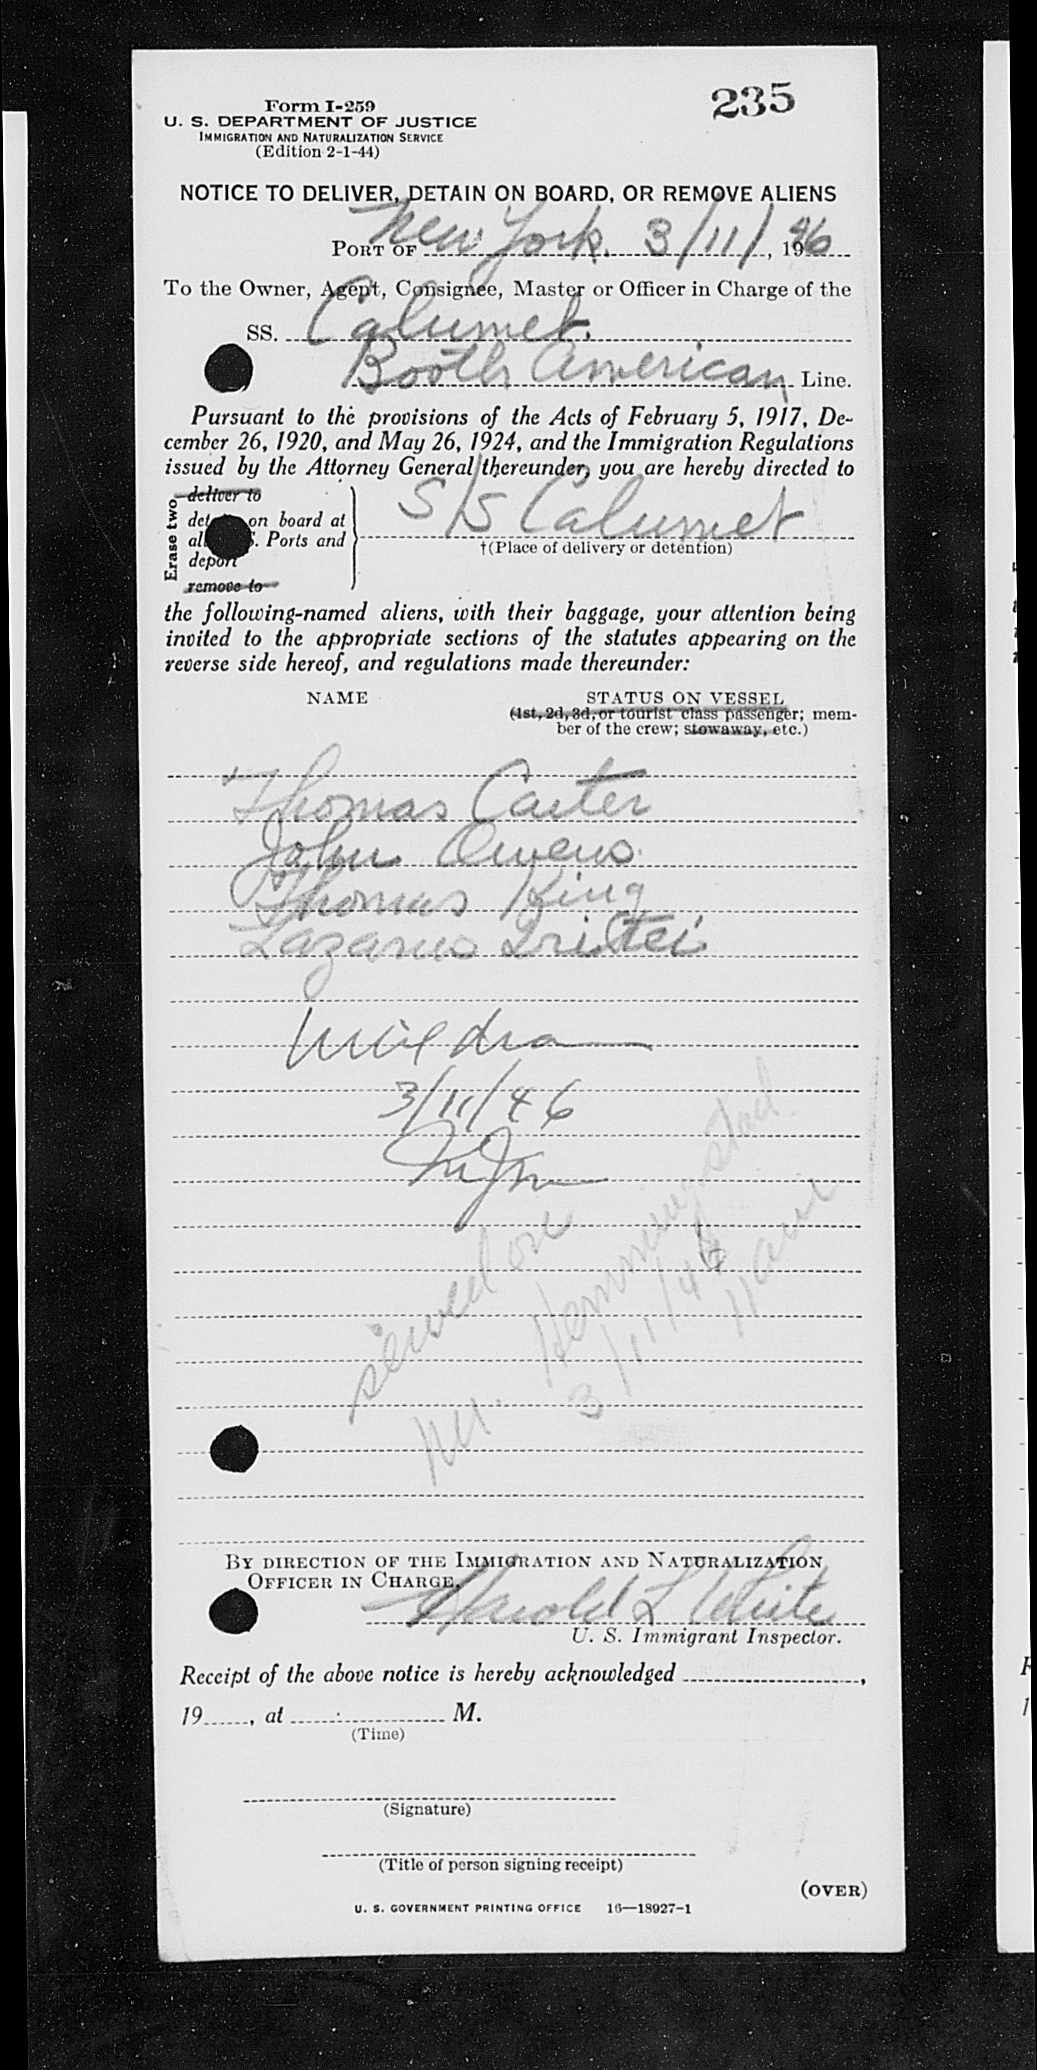 235
Form I-259
U. S. DEPARTMENT OF JUSTICE
IMMIGRATION AND NATURALIZATION SERVICE
(Edition 2-1-44)
NOTICE TO DELIVER, DETAIN ON BOARD, OR REMOVE ALIENS
PORT OF New York. 3/11/, 1946
To the Owner, Agent, Consignee, Master or Officer in Charge of the
SS. Calumet.
Booth American Line.
Pursuant to the provisions of the Acts of February 5, 1917, De-
cember 26, 1920, and May 26, 1924, and the Immigration Regulations
issued by the Attorney General thereunder, you are hereby directed to
Erase two
deliver to
on board at
S. Ports and
deport
remove to
S/S Calumet
†(Place of delivery or detention)
the following-named aliens, with their baggage, your attention being
invited to the appropriate sections of the statutes appearing on the
reverse side hereof, and regulations made thereunder:
NAME STATUS ON VESSEL
(1st, 2d, 3d, or tourist class passenger; mem-
ber of the crew; stowaway, etc.)
Thomas Carter
John Owens
Thomas King
Lazarus
3/11/46
served on
Mr.
3/11/46
11 am
BY DIRECTION OF THE IMMIGRATION AND NATURALIZATION
OFFICER IN CHARGE.
Harold L White
U. S. Immigrant Inspector.
Receipt of the above notice is hereby acknowledged ,
19 , at : M.
(Time)
(Signature)
(Title of person signing receipt)
(OVER)
U. S. GOVERNMENT PRINTING OFFICE 16—18927-1